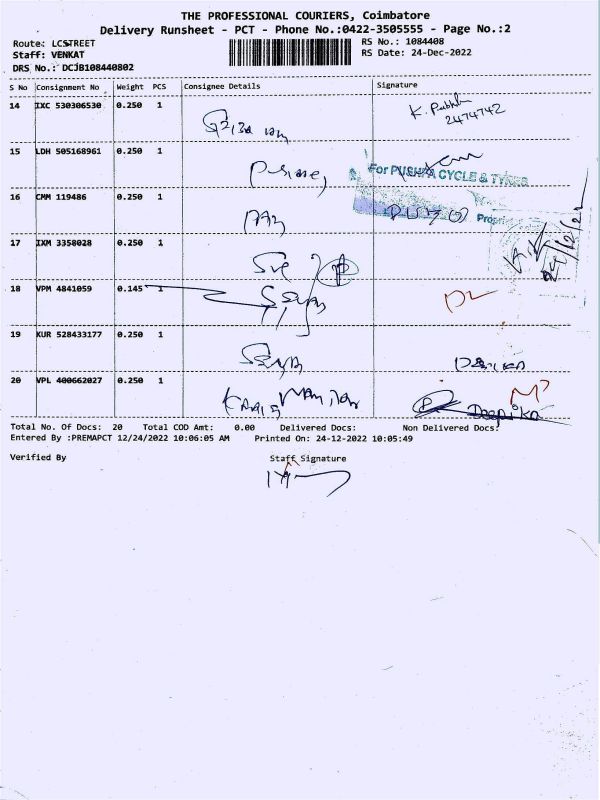 THE PROFESSIONAL COURIERS, Coimbatore
Delivery Runsheet - PCT - Phone No.:0422-3505555 - Page No.:2
Route: LCSTREET
RS No.: 1084408
Staff: VENKAT
RS Date: 24-Dec-2022
DRS No.: DCJB108440802
S No Consignment No Weight PCS Consignee Details Signature
14 IXC 530306530 0.250 1 K. Prabhu
2474742
15 LDH 505168961 0.250 1
For PUSHPA CYCLE & TYRES
16 CMM 119486 0.250 1
17 IXM 3358028 0.250 1 Sre
18 VPM 4841059 0.145 1
19 KUR 528433177 0.250 1
20 VPL 400662027 0.250 1 Deepika
Total No. Of Docs: 20 Total COD Amt: 0.00 Delivered Docs: Non Delivered Docs:
Entered By :PREMAPCT 12/24/2022 10:06:05 AM Printed On: 24-12-2022 10:05:49
Verified By Staff Signature